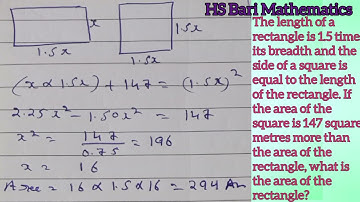 HS Bari Mathematics
The length of a
rectangle is 1.5 time
its breadth and the
side of a square is
equal to the length
of the rectangle. If
the area of the
square is 147 square
metres more than
the area of the
rectangle, what is
the area of the
rectangle?
x
1.5x
1.5x
1.5x
(x × 1.5x) + 147 = (1.5x)²
2.25x² - 1.50x² = 147
x² = 147/0.75 = 196
x = 16
Area = 16 × 1.5 × 16 = 294 An